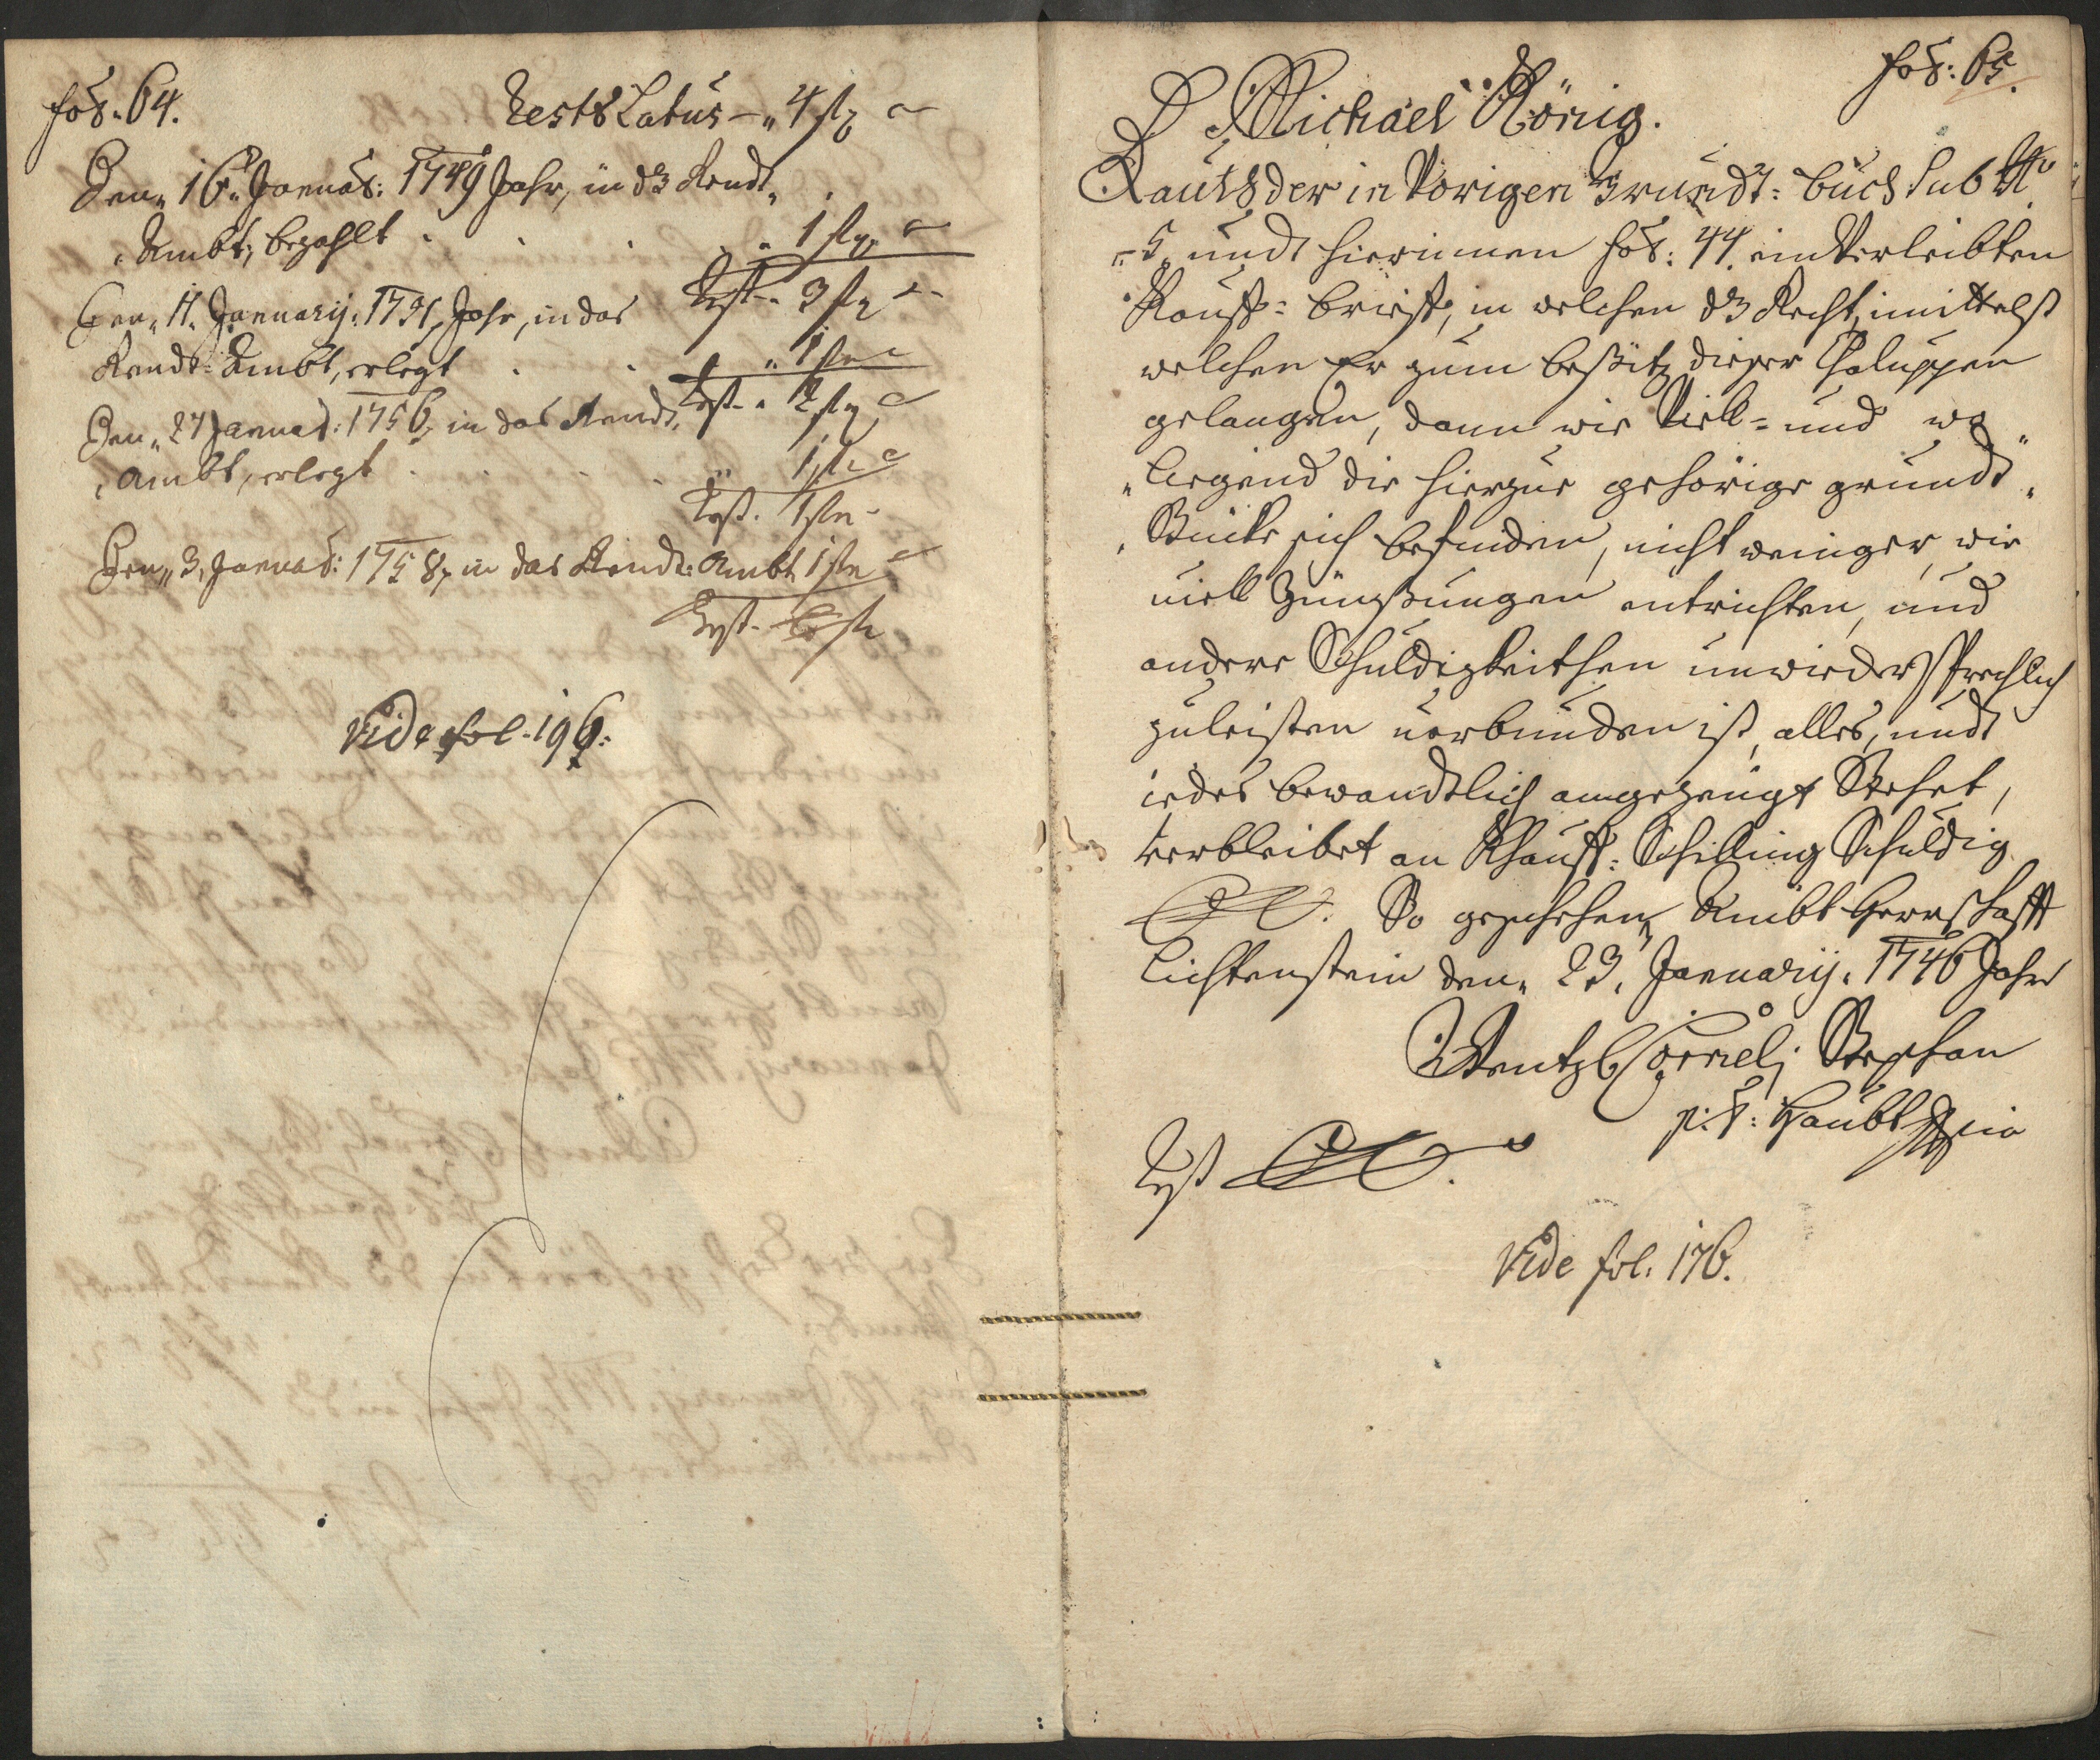 fol. 64.
Rests Latus — „ 4 fl
Den „ 16. Januar: 1749 Jahr, in d3 Rendt
Ambt, bezahlt . . . „ 1 fl
Rest . 3 fl
Den „ 11. Januarij . 1751, Jahr, in das
Rendt-Ambt, erlegt . . „ 1 fl
Rest . 2 fl
Den „ 27 Januar: 1756, in das Rendt,
Ambt, erlegt . . . . „ 1 fl
Rest . 1 fl
Den „ 3, Januar: 1758, in das Rendt: Ambt 1 fl
Rest
Vide fol. 196.
fol: 65.
Michäel König.
Lauth der in Vorigen Grundt: buch Sub No
5 undt hierinnen fol: 44. einVerleibten
Kauff: brieff, in welchen d3 Recht, mittelst
welchen Er zum besitz dieser Chaluppen
gelangen, dann wie Viell- und wo
Liegend die hierzue gehörige grundt
Stücke sich befinden, nicht weniger, wie
viell Zünßungen entrichten, und
andere Schuldigkeithen unwiedersprechlich
zuleisten verbunden ist, alles, undt
iedes bewandtlich angezeugt Stehet,
verbleibet an Khauff: Schilling Schuldig
So geschehen Ambt Herrschafft
Lichtenstein den „ 23, Januarij . 1746 Jahr
Wentzl Cornelj Stephan
p: t: Haubt
Rest
Vide fol. 176.